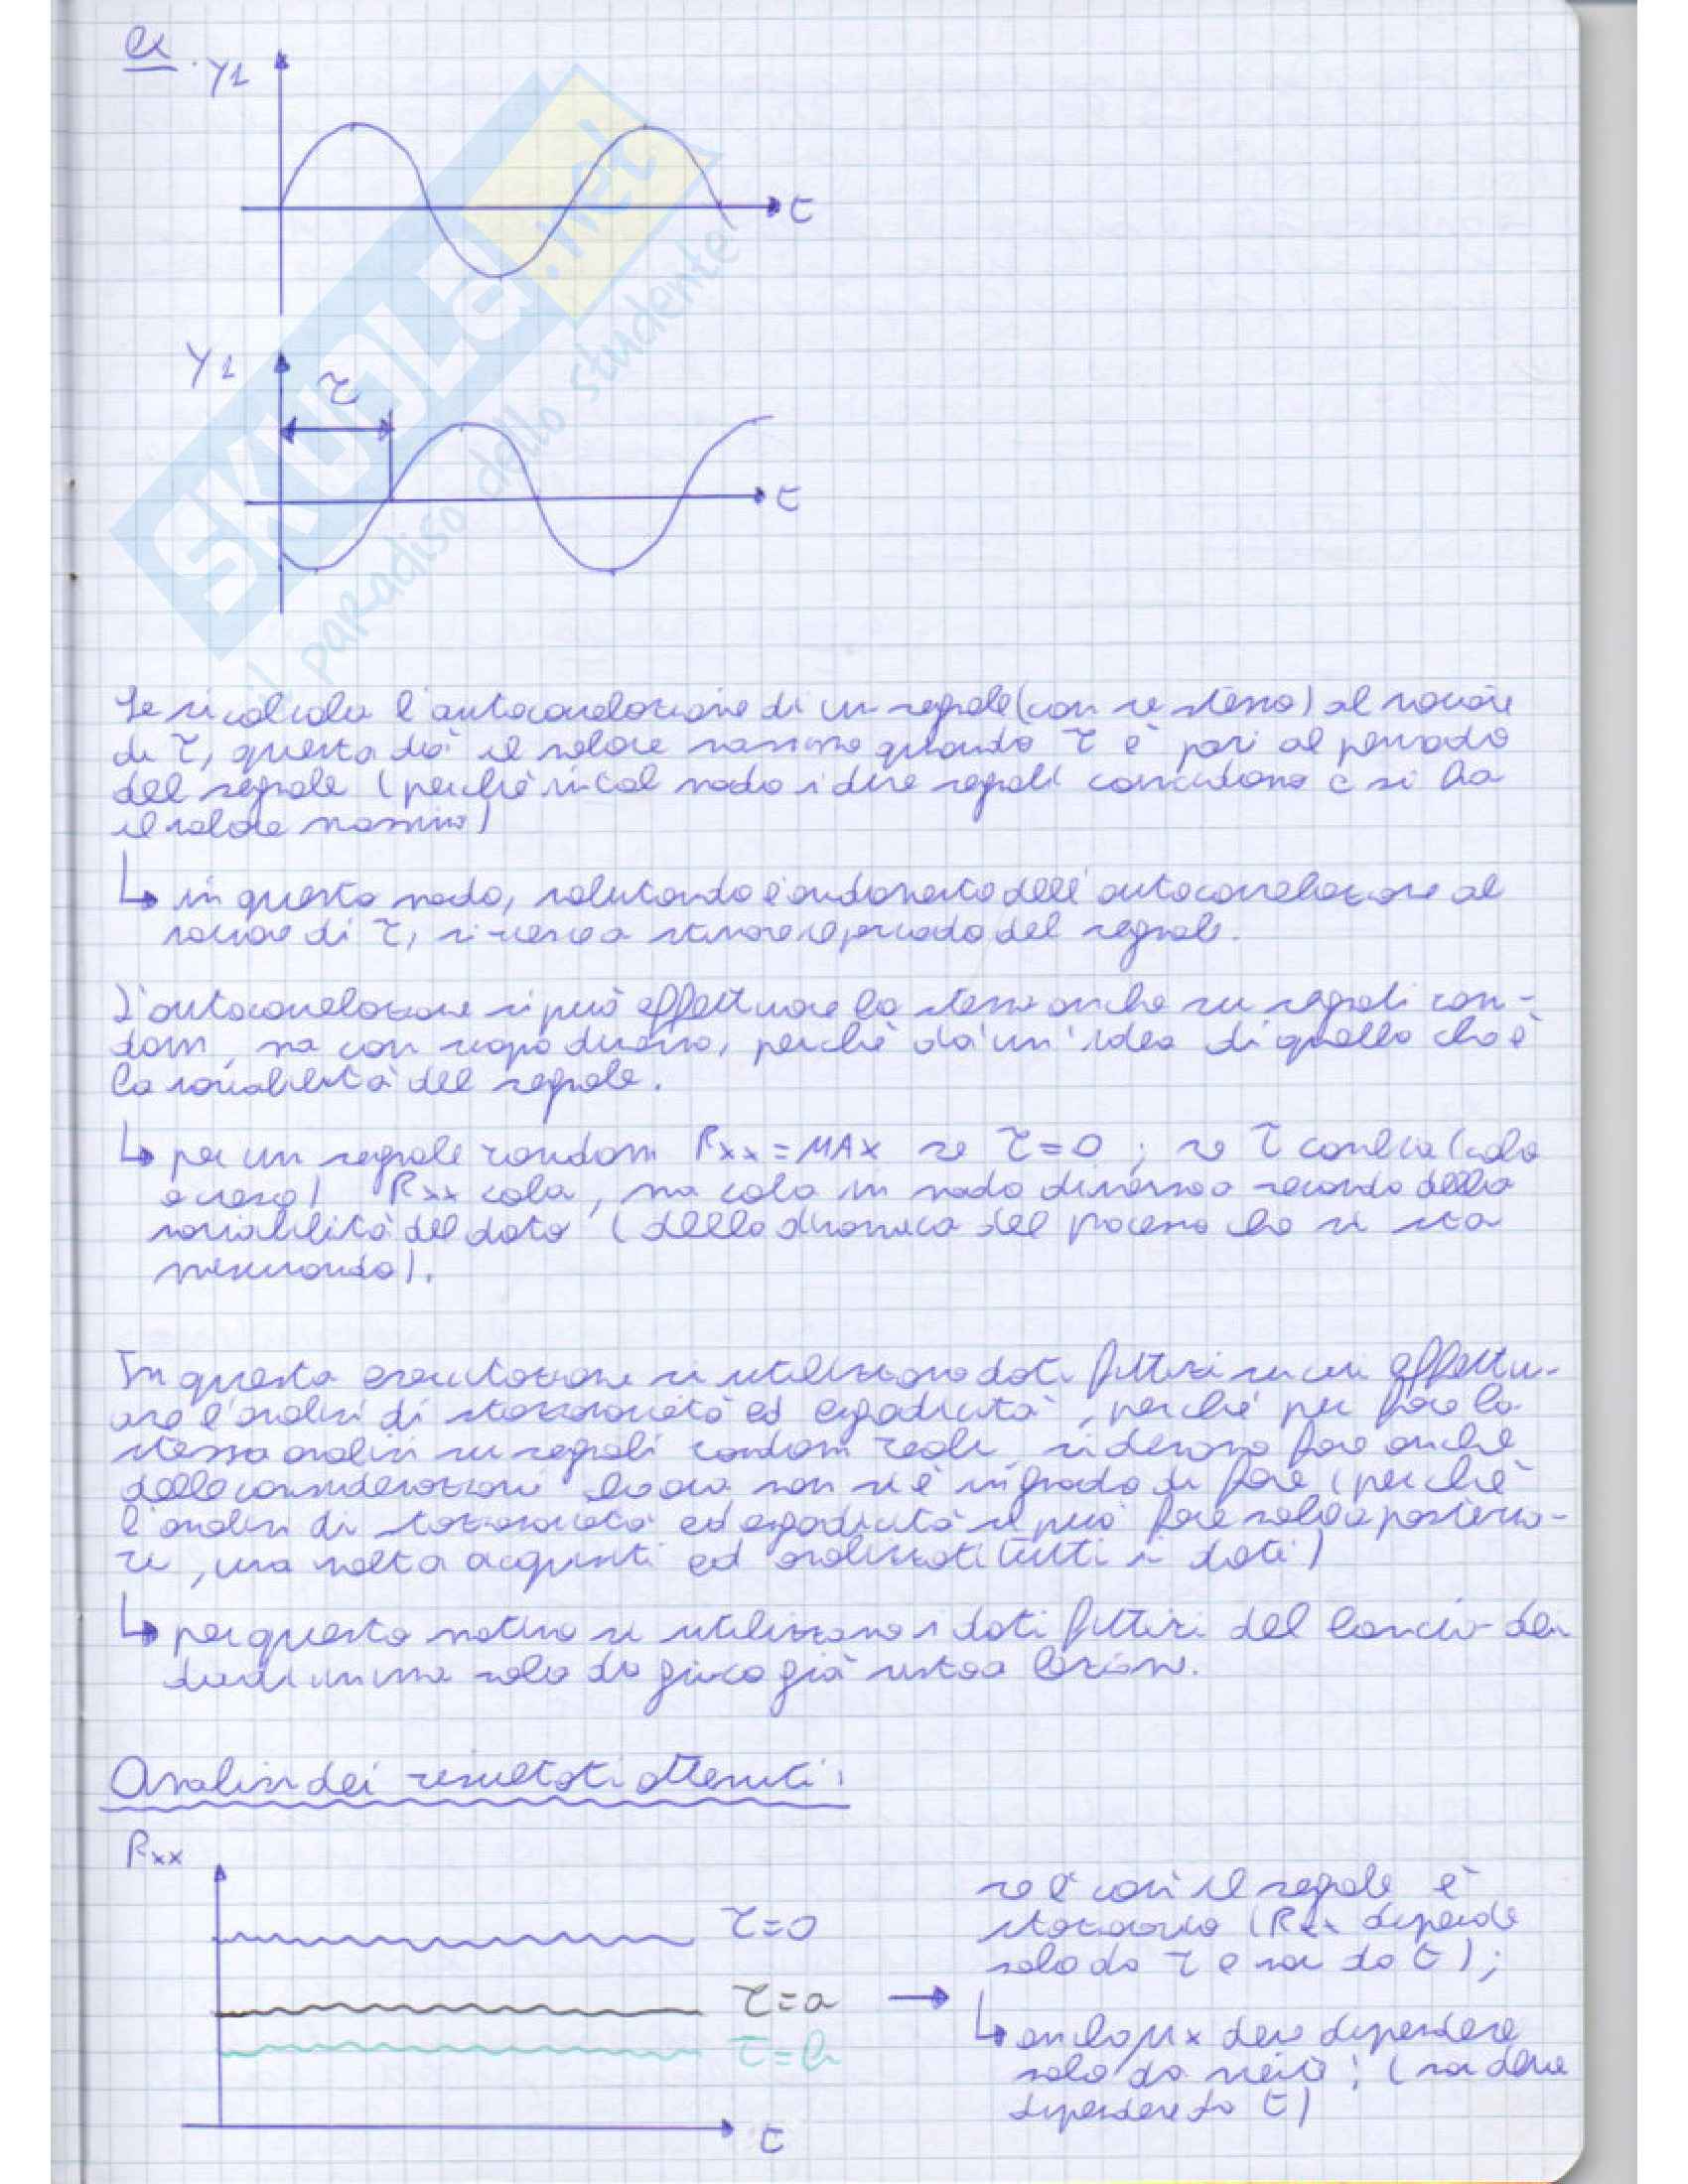 ex.
y1
t
y2
τ
t
SKUOLA.net
il paradiso dello studente
Se si calcola l'autocorrelazione di un segnale (con se stesso) al variare
di τ, questa dà il valore massimo quando τ è pari al periodo
del segnale (perchè in tal modo i due segnali coincidono e si ha
il valore massimo)
↳ in questo modo, valutando l'andamento dell'autocorrelazione al
variare di τ, si riesce a stimare il periodo del segnale.
L'autocorrelazione si può effettuare lo stesso anche su segnali ran-
dom, ma con scopo diverso, perchè dà un'idea di quello che è
la variabilità del segnale.
↳ per un segnale random Rxx = MAX se τ=0 ; se τ cambia (cala
o cresce) Rxx cala, ma cala in modo diverso a secondo della
variabilità del dato (della dinamica del processo che si sta
misurando).
In questa esercitazione si utilizzano dati fittizi su cui effettu-
are l'analisi di stazionarietà ed ergodicità, perché per fare la
stessa analisi su segnali random reali, si devono fare anche
delle considerazioni che ora non si è in grado di fare (perchè
l'analisi di stazionarietà ed ergodicità si può fare solo a posterio-
ri, una volta acquisiti ed analizzati tutti i dati)
↳ per questo motivo si utilizzano i dati fittizi del lancio dei
dadi in una sala da gioco già vista a lezione.
Analisi dei risultati ottenuti:
Rxx
τ=0
τ=a
τ=b
t
→ se è così il segnale è
stazionario (Rxx dipende
solo da τ e non da t);
↳ anche μx deve dipendere
solo da (non deve
dipendere da t)